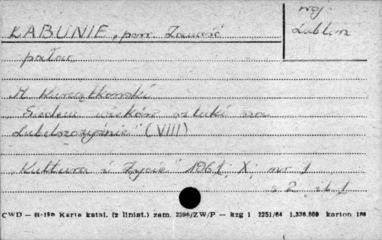 ŁABUNIE, pow. Zamość
woj.
Lublin
pałac
M. Kurzątkowski
Siedem wieków sztuki na
Lubelszczyźnie" (VIII)
"Kultura i Życie" 1961, X, nr 1
s. 2 il. 1
CWD — H-15b Karta katal. (z liniat.) zam. 2396/Z/W/P — kzg 1 2251/64 1.330.000 karton 180